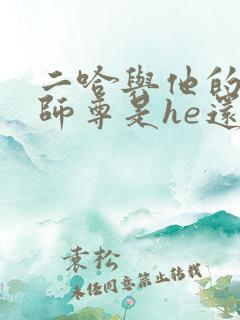 二哈與他的
師尊是he還
袁松
未经同意禁止转载